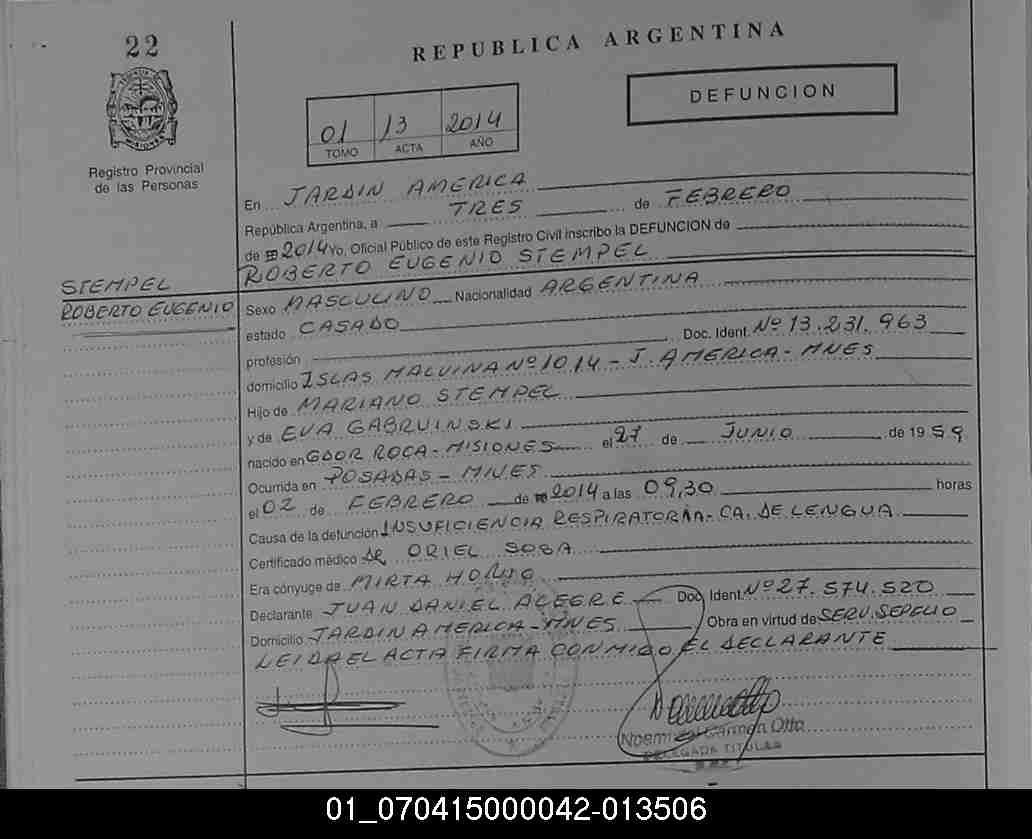 22
REPUBLICA ARGENTINA
DEFUNCION
01 13 2014
TOMO ACTA AÑO
Registro Provincial
de las Personas
En JARDIN AMERICA
República Argentina, a TRES de FEBRERO
de 2014 Yo, Oficial Público de este Registro Civil inscribo la DEFUNCION de
ROBERTO EUGENIO STEMPEL
STEMPEL
ROBERTO EUGENIO
Sexo MASCULINO Nacionalidad ARGENTINA
estado CASADO
profesión Doc. Ident. Nº 13.231.963
domicilio ISLAS MALVINA Nº 1014 - J. AMERICA - MNES
Hijo de MARIANO STEMPEL
y de EVA GABRUINSKI
nacido en GDOR ROCA - MISIONES el 27 de JUNIO de 1959
Ocurrida en POSADAS - MNES
el 02 de FEBRERO de 2014 a las 09,30 horas
Causa de la defunción INSUFICIENCIA RESPIRATORIA - CA. DE LENGUA
Certificado médico DR ORIEL SOSA
Era cónyuge de MIRTA
Declarante JUAN DANIEL ALEGRE Doc. Ident. Nº 27.574.520
Domicilio JARDIN AMERICA - MNES Obra en virtud de SERV. SEPELIO
LEIDA EL ACTA FIRMA CONMIGO EL DECLARANTE
Noemi del Carmen Otto
DELEGADA TITULAR
01_070415000042-013506